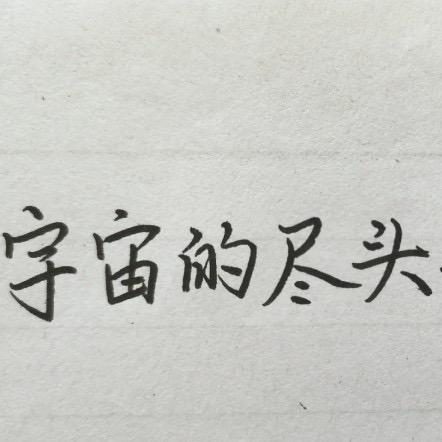 宇宙的尽头